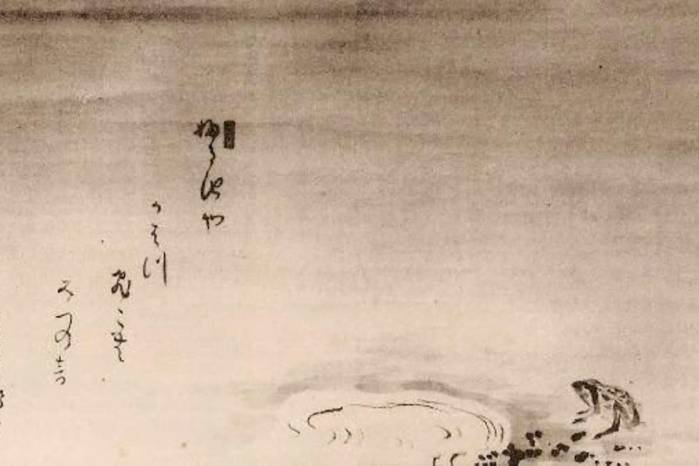 ふる池や
かはつ
飛こむ
水の音